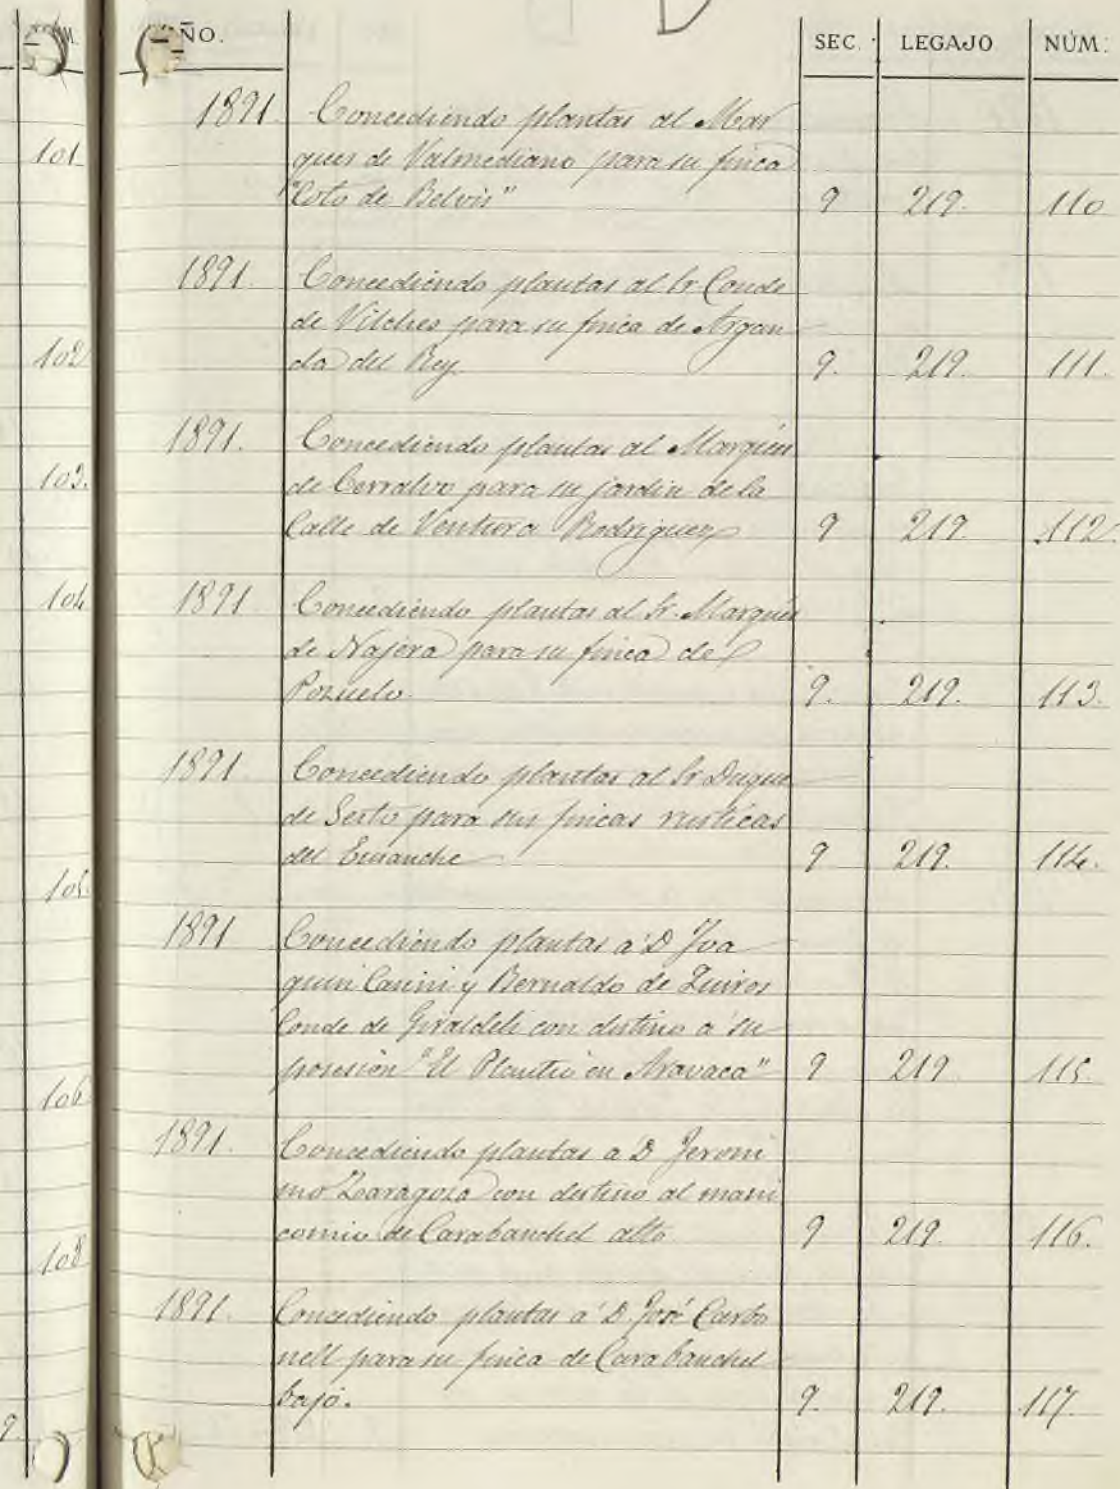 NÚM.
101
102
103.
104
105.
106
108
9
AÑO. SEC. LEGAJO NÚM.
1891 Concediendo plantas al Mar
ques de Valmediano para su finca
"Coto de Belvis" 9 219. 110
1891. Concediendo plantas al Sr Conde
de Vilches para su finca de Argan
da del Rey. 9. 219. 111.
1891. Concediendo plantas al Marqués
de Cerralvo para su jardin de la
Calle de Ventura Rodriguez 9 219. 112.
1891 Concediendo plantas al Sr. Marqués
de Najera para su finca de
Pozuelo. 9. 219. 113.
1891 Concediendo plantas al Sr Duque
de Sexto para sus fincas rusticas
del Ensanche 9 219. 114.
1891 Concediendo plantas á D Joa
quin Casini y Bernaldo de Quiros
Conde de Giraldeli con destino a su
posesión "El Plantio en Aravaca" 9 219 115.
1891. Concediendo plantas a D Jeroni
mo Zaragoza con destino al mani
comio de Carabanchel alto 9 219. 116.
1891. Concediendo plantas á D. José Carbo
nell para su finca de Carabanchel
bajo. 9. 219. 117.